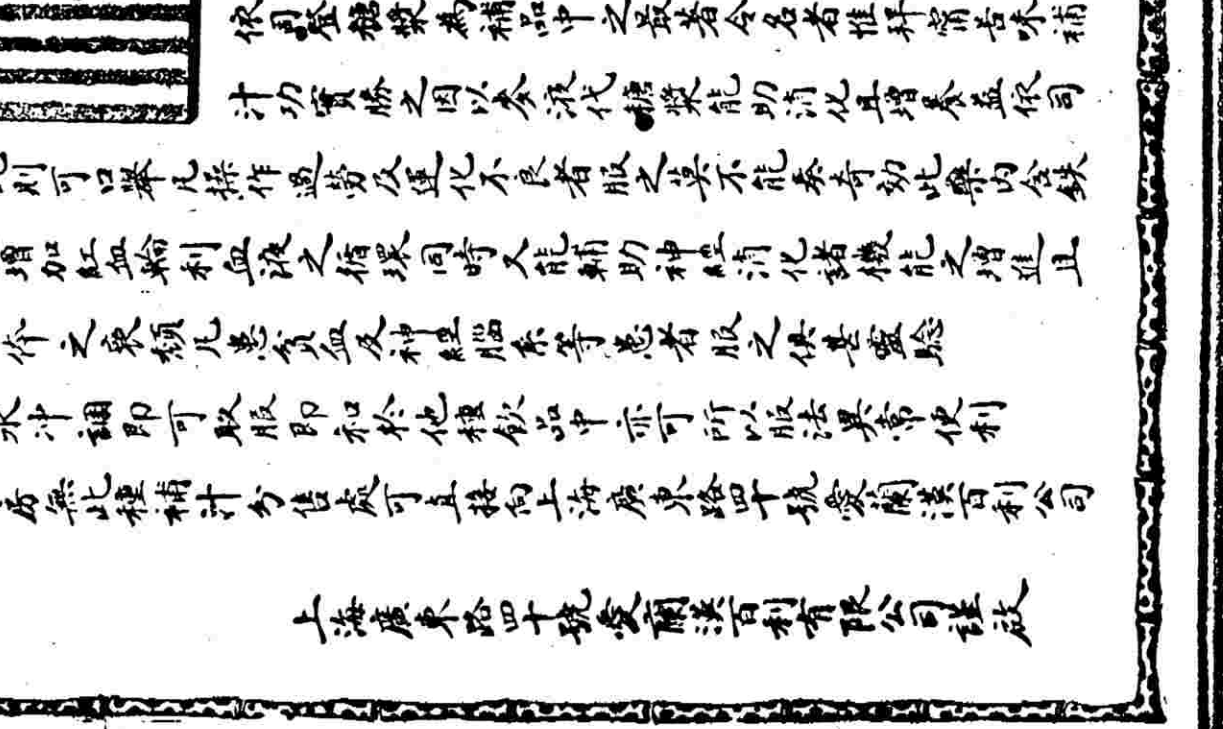 依司登糖漿為補品中之最著令名者惟拜甯苦味補
汁功實勝之因以麥液代糖漿能助消化且增養益依司
則可口舉凡操作過勞及運化不良者服之莫不能奏奇効此藥内含鉄
增加紅血輪利血液之循環同時又能輔助神經消化諸機能之增進且
体之衰頹凡患貧血及神經腦系等患者服之俱甚靈驗
水冲調即可取服即和於他種飲品中亦可所以服法異常便利
房無此種補汁分售處可直接向上海廣東路四十號愛蘭漢百利公司
上海廣東路四十號愛蘭漢百利有限公司謹啟